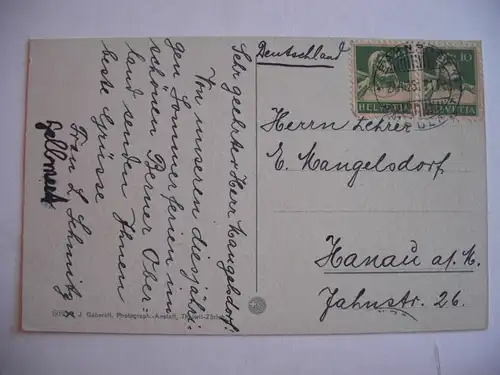 Sehr geehrter Herr Mangelsdorf!
Von unseren diesjähri-
gen Sommerferien im
schönen Berner Ober-
land senden Ihnen
beste Grüsse
Frau L Schmitz
Deutschland
10
HELVETIA HELVETIA
Herrn Lehrer
E. Mangelsdorf
Hanau a/M.
Jahnstr. 26.
J. Gaberell, Photograph.-Anstalt, Thalwil-Zürich